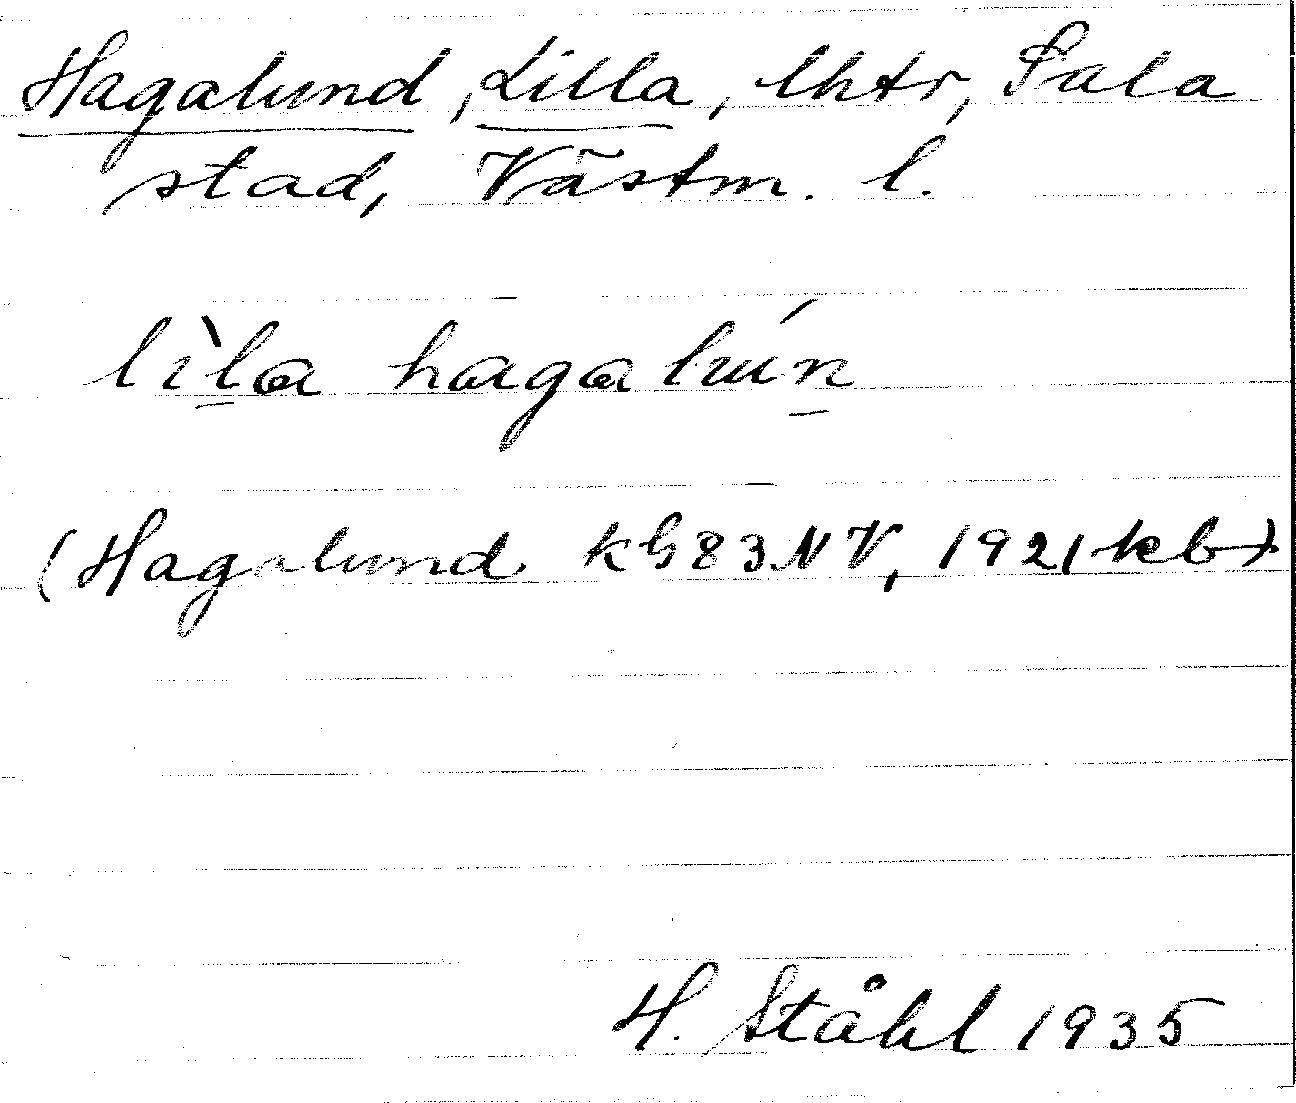 Hagalund, Lilla, lhtr, Sala
stad, Västm. l.
lìl̠a hagalún̠
(Hagalund kG83NV, 1921 kb).
H. Ståhl 1935